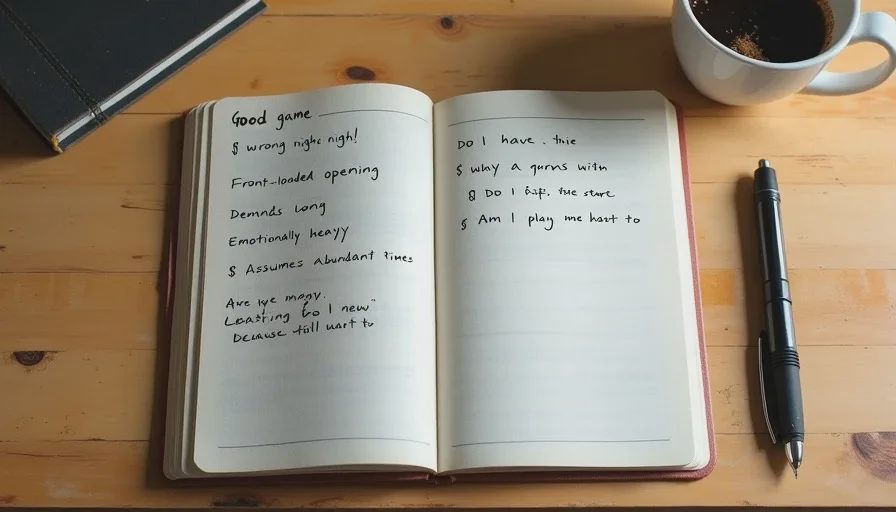 Good game
§ wrong night nigh!
Front-loaded opening
Demnds Long
Emotionally heavy
§ Assumes abundant times
Are we many.
Learning to I new
Because still want to
Do I have . this
§ why a gurns with
§ Do I the sture
§ Am I play me hart to